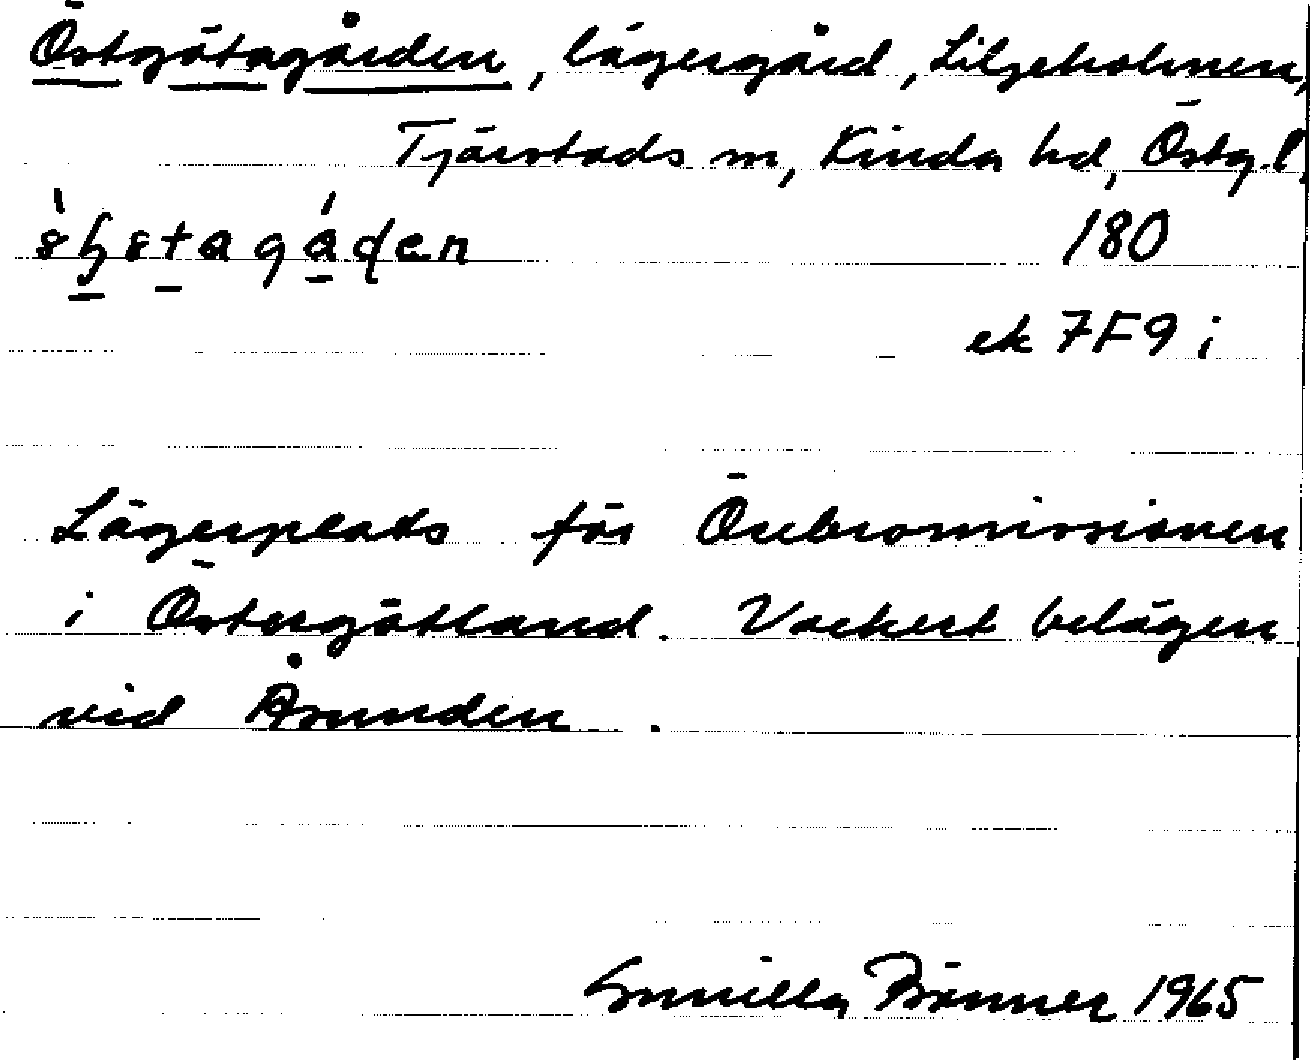 Östgötagården, lägergård, Liljeholmen,
Tjärstads sn, Kinda hd, Östg. l.
180
ek 7F9i
Lägerplats för Örebromissionen
i Östergötland. Vackert belägen
vid Åsunden.
Gunilla Bönner 1965